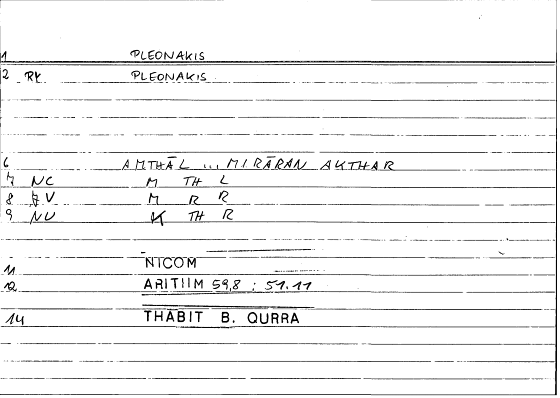 1 PLEONAKIS
2 RK PLEONAKIS
6 AMTHĀL ... MIRĀRAN AKTHAR
7 NC M TH L
8 V M R R
9 NU K TH R
11 NICOM
12 ARITIIM 59,8 : 51.11
14 THĀBIT B. QURRA